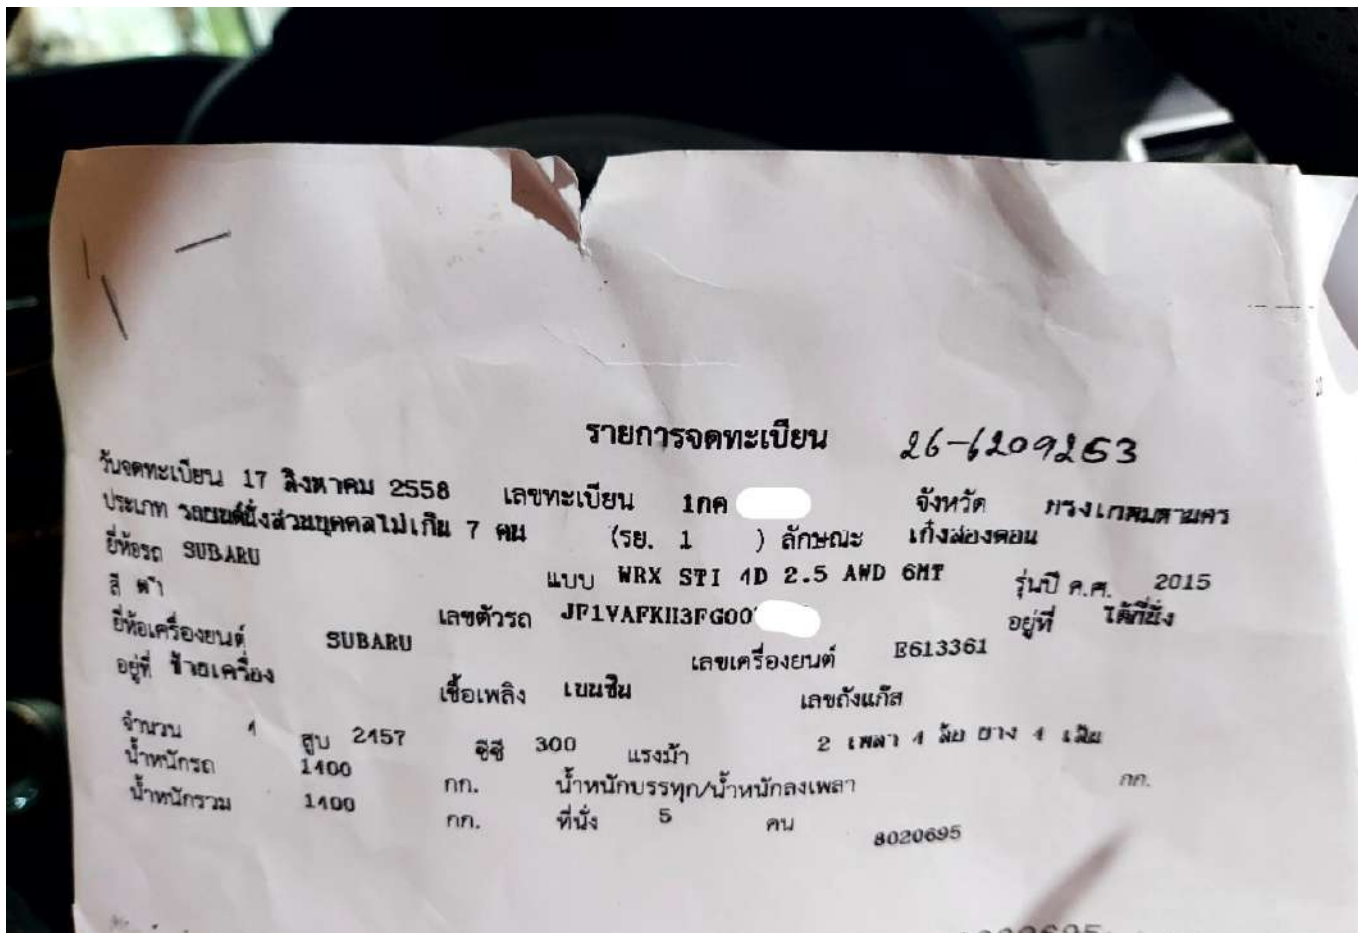 รายการจดทะเบียน 26-6209253
วันจดทะเบียน 17 สิงหาคม 2558 เลขทะเบียน 1กค จังหวัด กรุงเทพมหานคร
ประเภท รถยนต์นั่งส่วนบุคคลไม่เกิน 7 คน (รย. 1 ) ลักษณะ เก๋งสองตอน
ยี่ห้อรถ SUBARU แบบ WRX STI 4D 2.5 AWD 6MT รุ่นปี ค.ศ. 2015
สี ดำ เลขตัวรถ JF1VAFKH3FG00 อยู่ที่ ใต้ที่นั่ง
ยี่ห้อเครื่องยนต์ SUBARU เลขเครื่องยนต์ E613361
อยู่ที่ ซ้ายเครื่อง เชื้อเพลิง เบนซิน เลขถังแก๊ส
จำนวน 4 สูบ 2457 ซีซี 300 แรงม้า 2 เพลา 4 ล้อ ยาง 4 เส้น
น้ำหนักรถ 1400 กก. น้ำหนักบรรทุก/น้ำหนักลงเพลา กก.
น้ำหนักรวม 1400 กก. ที่นั่ง 5 คน
8020695